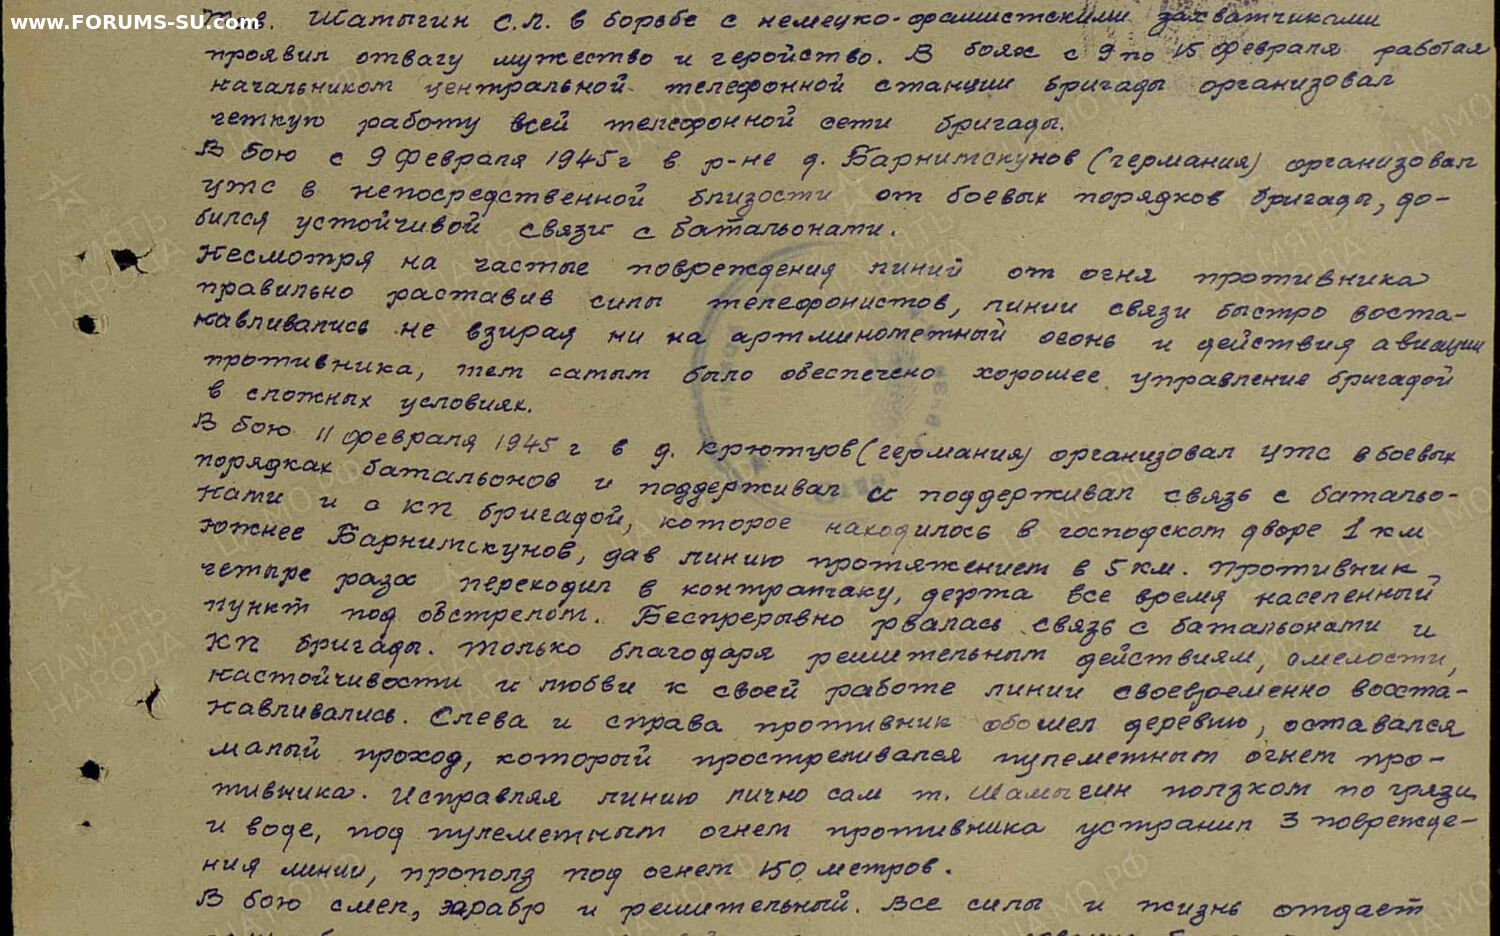 www.FORUMS-SU.com
Тов. Шатыгин С.Л. в борьбе с немецко-фашистскими захватчиками
проявил отвагу мужество и геройство. В боях с 9 по 15 февраля работая
начальником центральной телефонной станции бригады организовал
четкую работу всей телефонной сети бригады.
В бою с 9 февраля 1945 г в р-не д. Барнимскунов (германия) организовал
ЦТС в непосредственной близости от боевых порядков бригады, до-
бился устойчивой связи с батальонами.
Несмотря на частые повреждения линий от огня противника
правильно раставив силы телефонистов, линии связи быстро воста-
навливались не взирая ни на артминометный огонь и действия авиации
противника, тем самым было обеспечено хорошее управление бригадой
в сложных условиях.
В бою 11 февраля 1945 г в д. Крютцов (германия) организовал ЦТС в боевых
порядках батальонов и поддерживал и поддерживал связь с батальо-
нами и с КП бригадой, которое находилось в господском дворе 1 км
южнее Барнимскунов, дав линию протяжением в 5 км. Противник
четыре раза переходил в контратаку, держа все время населенный
пункт под обстрелом. Беспрерывно рвалась связь с батальонами и
КП бригады. Только благодаря решительным действиям, смелости,
настойчивости и любви к своей работе линии своевременно восста-
навливались. Слева и справа противник обошел деревню, оставался
малый проход, который простреливался пулеметным огнем про-
тивника. Исправляя линию лично сам т. Шамыгин ползком по грязи
и воде, под пулеметным огнем противника устранил 3 поврежде-
ния линии, прополз под огнем 150 метров.
В бою смел, храбр и решительный. Все силы и жизнь отдает